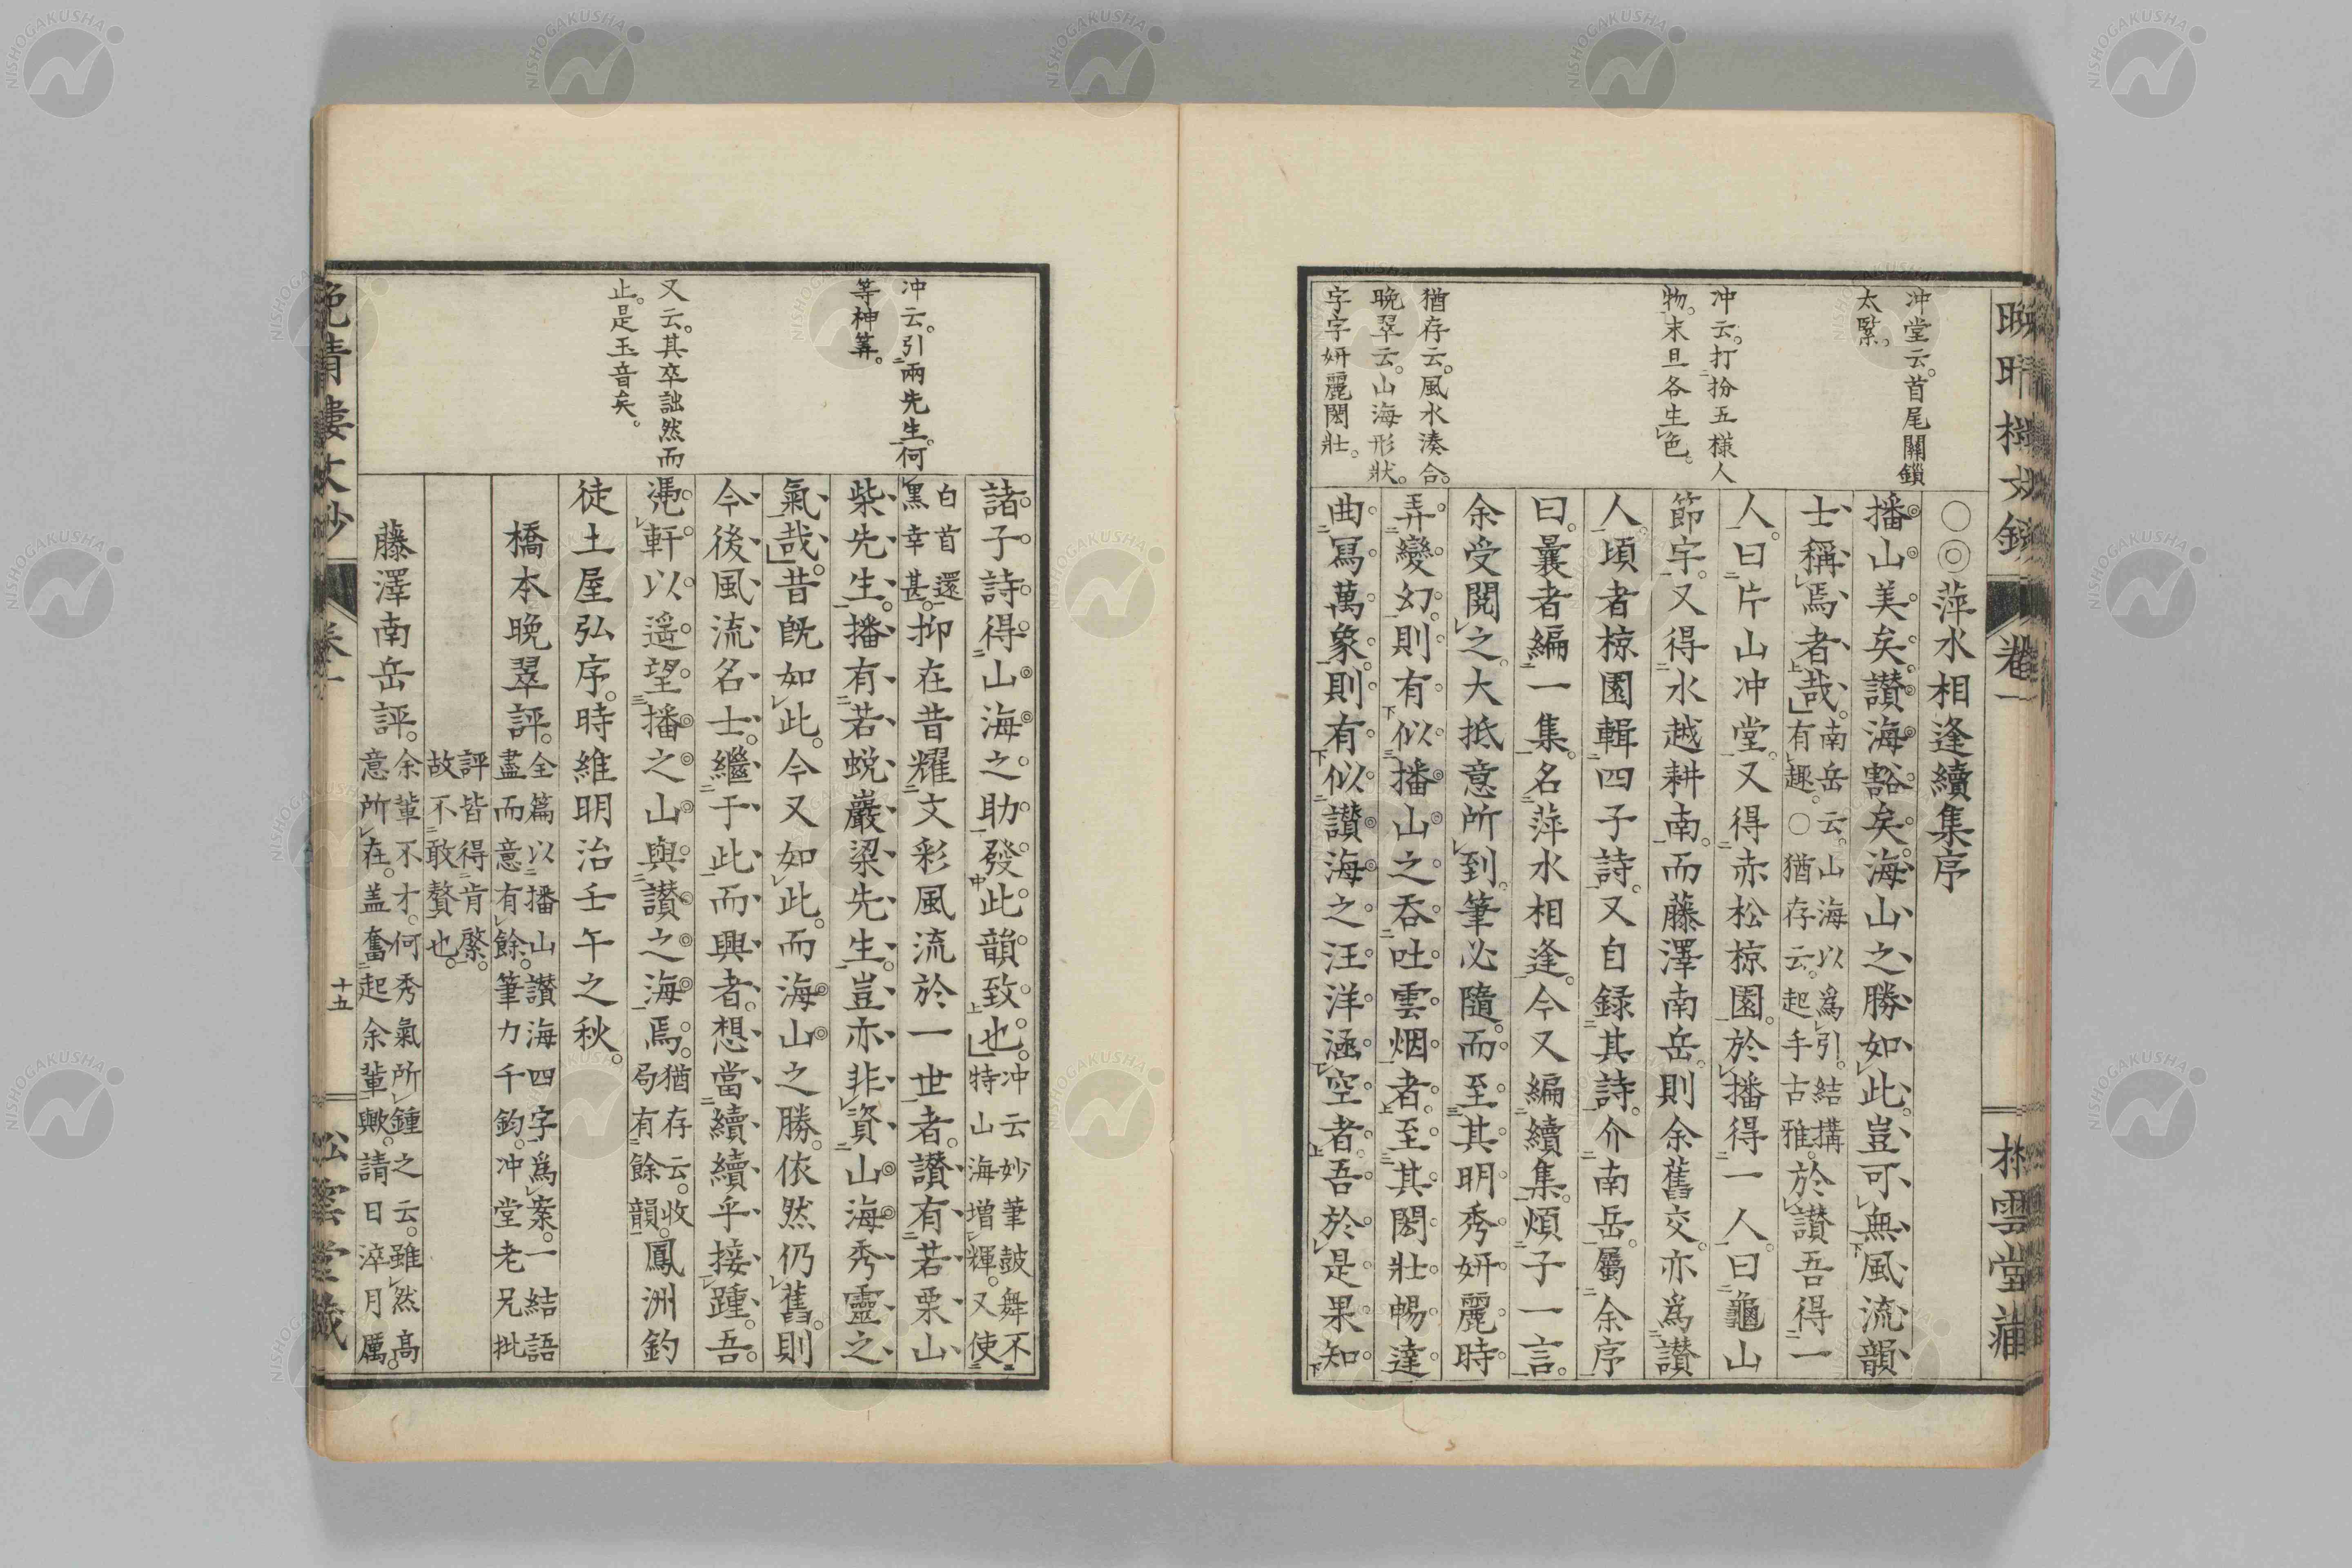 冲堂云。首尾關鎖
太緊。
冲云。打扮五樣人
物。末旦各生色。
猶存云。風水湊合。
晩翠云。山海形狀。
字字妍麗閎壯。
○◎萍水相逢續集序
播山美矣。讃海豁矣。海山之勝如此。豈可無風流韻
士稱焉者哉。南岳云。山海以爲引。結搆
有趣。○猶存云。起手古雅。於讃吾得一
人。曰片山冲堂。又得赤松椋園。於播得一人。曰龜山
節宇。又得水越耕南。而藤澤南岳。則余舊交。亦爲讃
人。頃者椋園輯四子詩。又自録其詩。介南岳。屬余序
曰。曩者編一集。名萍水相逢。今又編續集。煩子一言。
余受閲之。大抵意所到。筆必隨。而至其明秀妍麗。時
弄變幻。則有似播山之吞吐雲烟者。至其閎壯暢達
曲冩萬象。則有似讃海之汪洋涵空者。吾於是果知
卷一
冲云。引兩先生。何
等神筭。
又云。其卒詘然而
止。是玉音矣。
諸子詩得山海之助。發此韻致也。冲云妙筆鼓舞不
特山海増輝。又使
白首還
黒幸甚。抑在昔耀文彩風流於一世者。讃有若栗山
柴先生。播有若蛻巖梁先生。豈亦非資山海秀靈之
氣哉。昔既如此。今又如此。而海山之勝。依然仍舊。則
今後風流名士。繼于此而興者。想當續續乎接踵。吾
凴軒以遥望播之山與讃之海焉。猶存云。收
局有餘韻。鳳洲釣
徒土屋弘序。時維明治壬午之秋。
橋本晩翠評。全篇以播山讃海四字爲案。一結語
盡而意有餘。筆力千鈞。冲堂老兄批
評皆得肯綮。
故不敢贅也。
藤澤南岳評。余輩不才。何秀氣所鍾之云。雖然高
意所在。盖奮起余輩歟。請日淬月厲。
十五